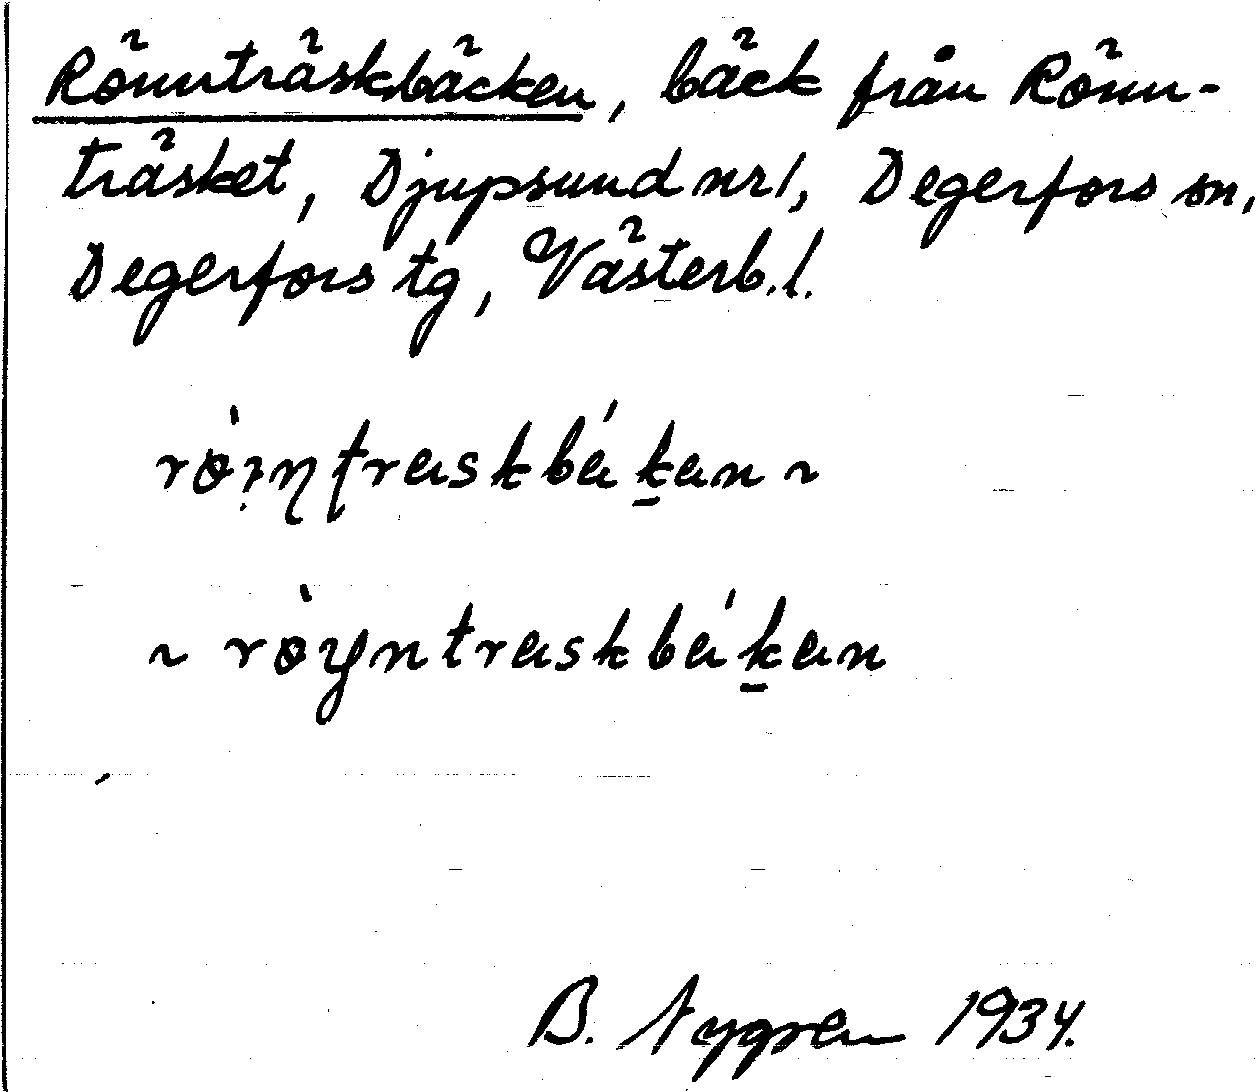 Rönnträskbäcken, bäck från Rönn-
träsket, Djupsund nr 1, Degerfors sn,
Degerfors tg, Västerb. l.
~
~
B. Nygren 1934.